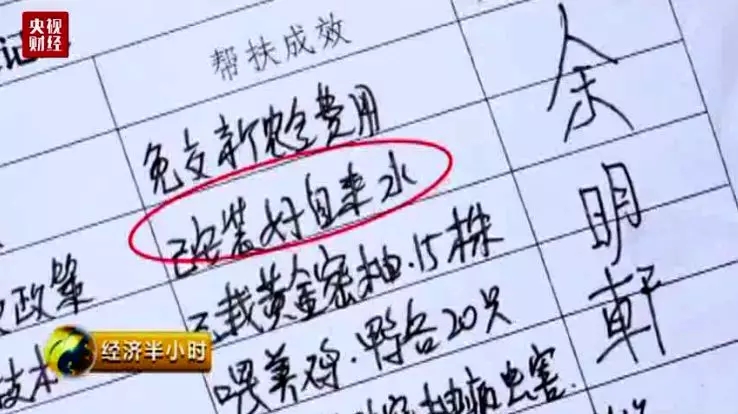 央视
财经
记
帮扶成效
免交新农合费用
已安装好自来水
已栽黄金密柚.15株
喂养鸡.鸭各20只
病虫害.
政策
技术
余明轩
经济半小时